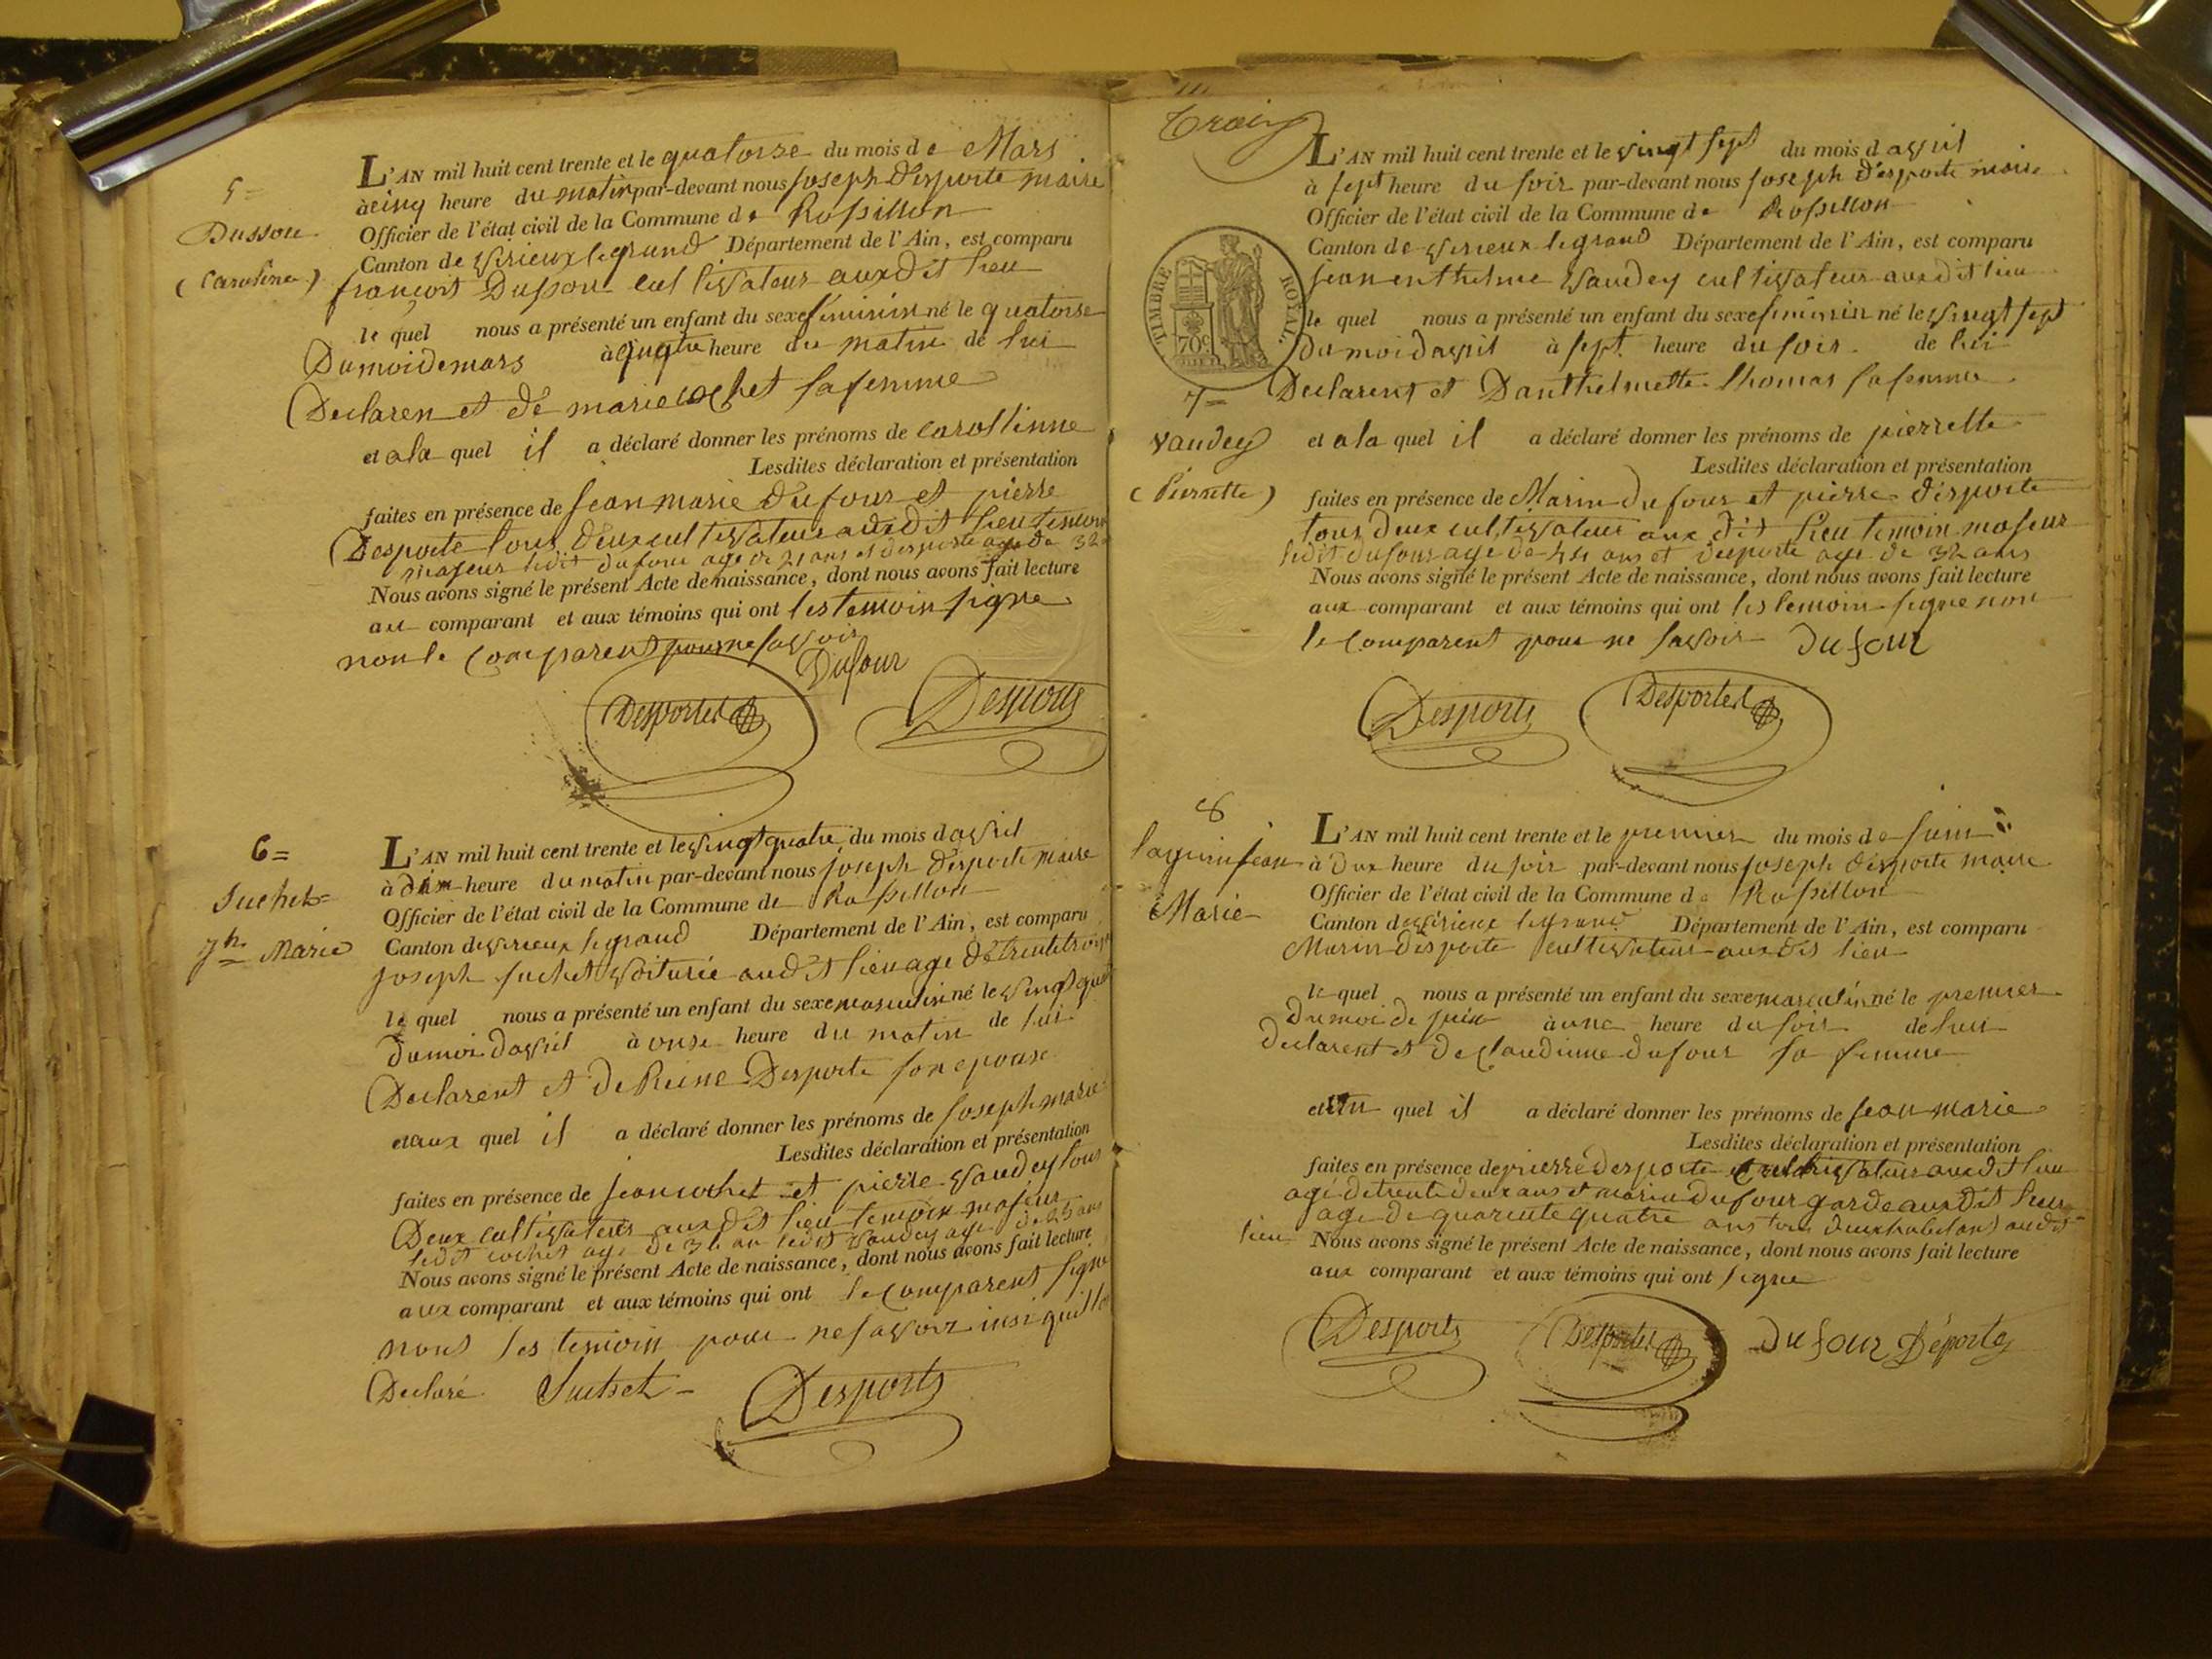 5=
Dusson
(Caroline)
L'AN mil huit cent trente et le quatorse du mois de Mars
à cinq heure du matin par-devant nous Joseph Desporte maire
Officier de l'état civil de la Commune de Rossillon
Canton de Virieux legrand Département de l'Ain, est comparu
françois Dusson cultivateur auxdit lieu
le quel nous a présenté un enfant du sexe féminin né le quatorse
Du moi de mars à heure du matin de lui
Declaren et de marie cochet sa femme
et a la quel il a déclaré donner les prénoms de carolinne
Lesdites déclaration et présentation
faites en présence de Jean marie Dufour et pierre
Desporte tous deux cultivateur auxdit lieu temoin
majeur ledit dufour age de 21 ans et desporte age de 32
Nous avons signé le présent Acte de naissance, dont nous avons fait lecture
au comparant et aux témoins qui ont les temoin signe
non le comparent pour ne savoir
Dufour
Desportes Desporte
6=
Suchet=
Jh Marie
L'AN mil huit cent trente et le vingt quatre du mois d avril
à dix heure du matin par-devant nous joseph desporte maire
Officier de l'état civil de la Commune de Rossillon
Canton de virieux legrand Département de l'Ain, est comparu
joseph suchet voiturié audit lieu age de trente trois
le quel nous a présenté un enfant du sexe masculin né le vingt
du moi d avril à onse heure du matin de lui
Declarent et de Reine Desporte son epouse
et aux quel il a déclaré donner les prénoms de joseph marie
Lesdites déclaration et présentation
faites en présence de jean cochet et pierre vaudey tous
Deux cultivateur auxdit lieu temoin majeur
ledit cochet age de an ledit vaudey age de 25 ans
Nous avons signé le présent Acte de naissance, dont nous avons fait lecture
aux comparant et aux témoins qui ont le comparent signe
nons les temoin pour ne savoir insi
Declaré Suchet Desporte
L'AN mil huit cent trente et le vingt sept du mois d avril
à sept heure du soir par-devant nous joseph desporte maire
Officier de l'état civil de la Commune de Rossillon
Canton de virieux legrand Département de l'Ain, est comparu
jean enthelme vaudey cultivateur auxdit lieu
TIMBRE ROYAL
70c
le quel nous a présenté un enfant du sexe feminin né le vingt sept
du moi d avril à sept heure du soir de lui
Declarent et Danthelmette Thomas sa femme
7=
vaudey
(Pierrette)
et a la quel il a déclaré donner les prénoms de pierrette
Lesdites déclaration et présentation
faites en présence de Marin dufour et pierre desporte
tous deux cultivateur aux dit lieu temoin majeur
ledit dufour age de 44 ans et desporte age de 32 ans
Nous avons signé le présent Acte de naissance, dont nous avons fait lecture
aux comparant et aux témoins qui ont les temoin signe non
le comparent pour ne savoir dufour
Desporte Desportes
8
jean
Marie
L'AN mil huit cent trente et le premier du mois de juin
à heure du soir par-devant nous joseph desporte maire
Officier de l'état civil de la Commune de Rossillon
Canton de virieux legrand Département de l'Ain, est comparu
Marin desporte cultivateur auxdit lieu
le quel nous a présenté un enfant du sexe masculin né le premier
du moi de juin à une heure du soir de lui
declarent et de claudinne dufour sa femme
et quel il a déclaré donner les prénoms de jean marie
Lesdites déclaration et présentation
faites en présence de pierre desporte cultivateur auxdit lieu
agé de trente deux ans et marin dufour garde auxdit lieu
age de quarente quatre ans tous deux habitant audit
lieu Nous avons signé le présent Acte de naissance, dont nous avons fait lecture
aux comparant et aux témoins qui ont signe
Desporte Desportes dufour Déporte